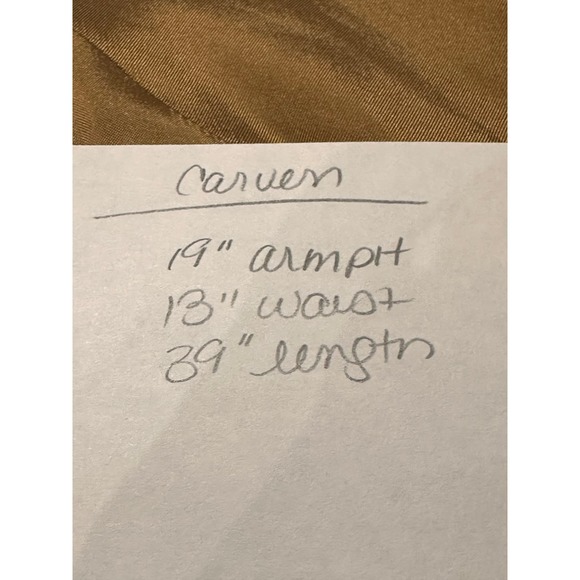 Carven
19" armpit
13" waist
39" length